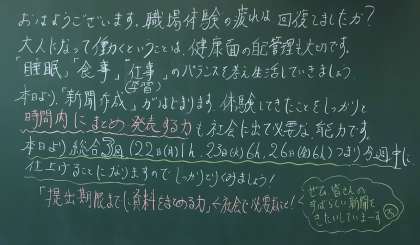 おはようございます。職場体験の疲れは回復しましたか?
大人になって働くということは、健康面の自己管理も大切です。
「睡眠」「食事」「仕事(学習)」のバランスを考え生活していきましょう
本日より、「新聞作成」がはじまります。体験してきたことをしっかりと
時間内にまとめ発表する力も社会に出て必要な能力です。
本日より総合3回(22日(月)1h、23日(火)6h、26日(金)6h)つまり今週中に
仕上げることになりますのでしっかりとりくみましょう!
「提出期限までに資料をまとめる力」←社会で必要だよ!
ぜひ皆さんの
すばらしい新聞を
きたいしていまーす